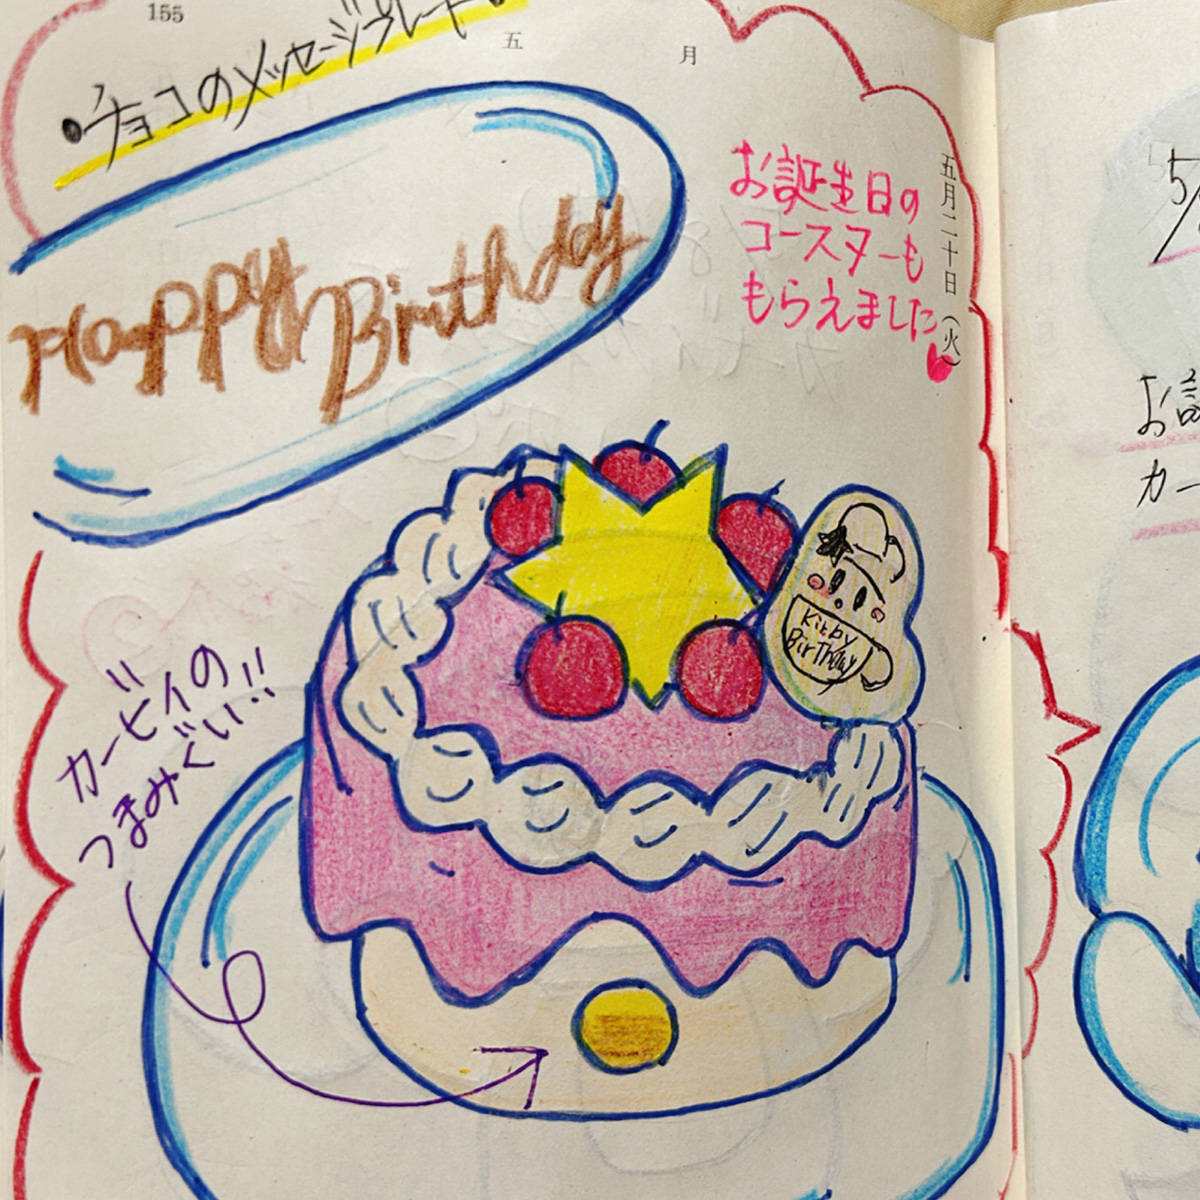 155
五 月
五月二十日(火)
•チョコのメッセージプレート•
Happy
Birthday
お誕生日の
コースターも
もらえました
Kirby
BirThday
カービィの
つまみぐい!!
5/
お誕
カー